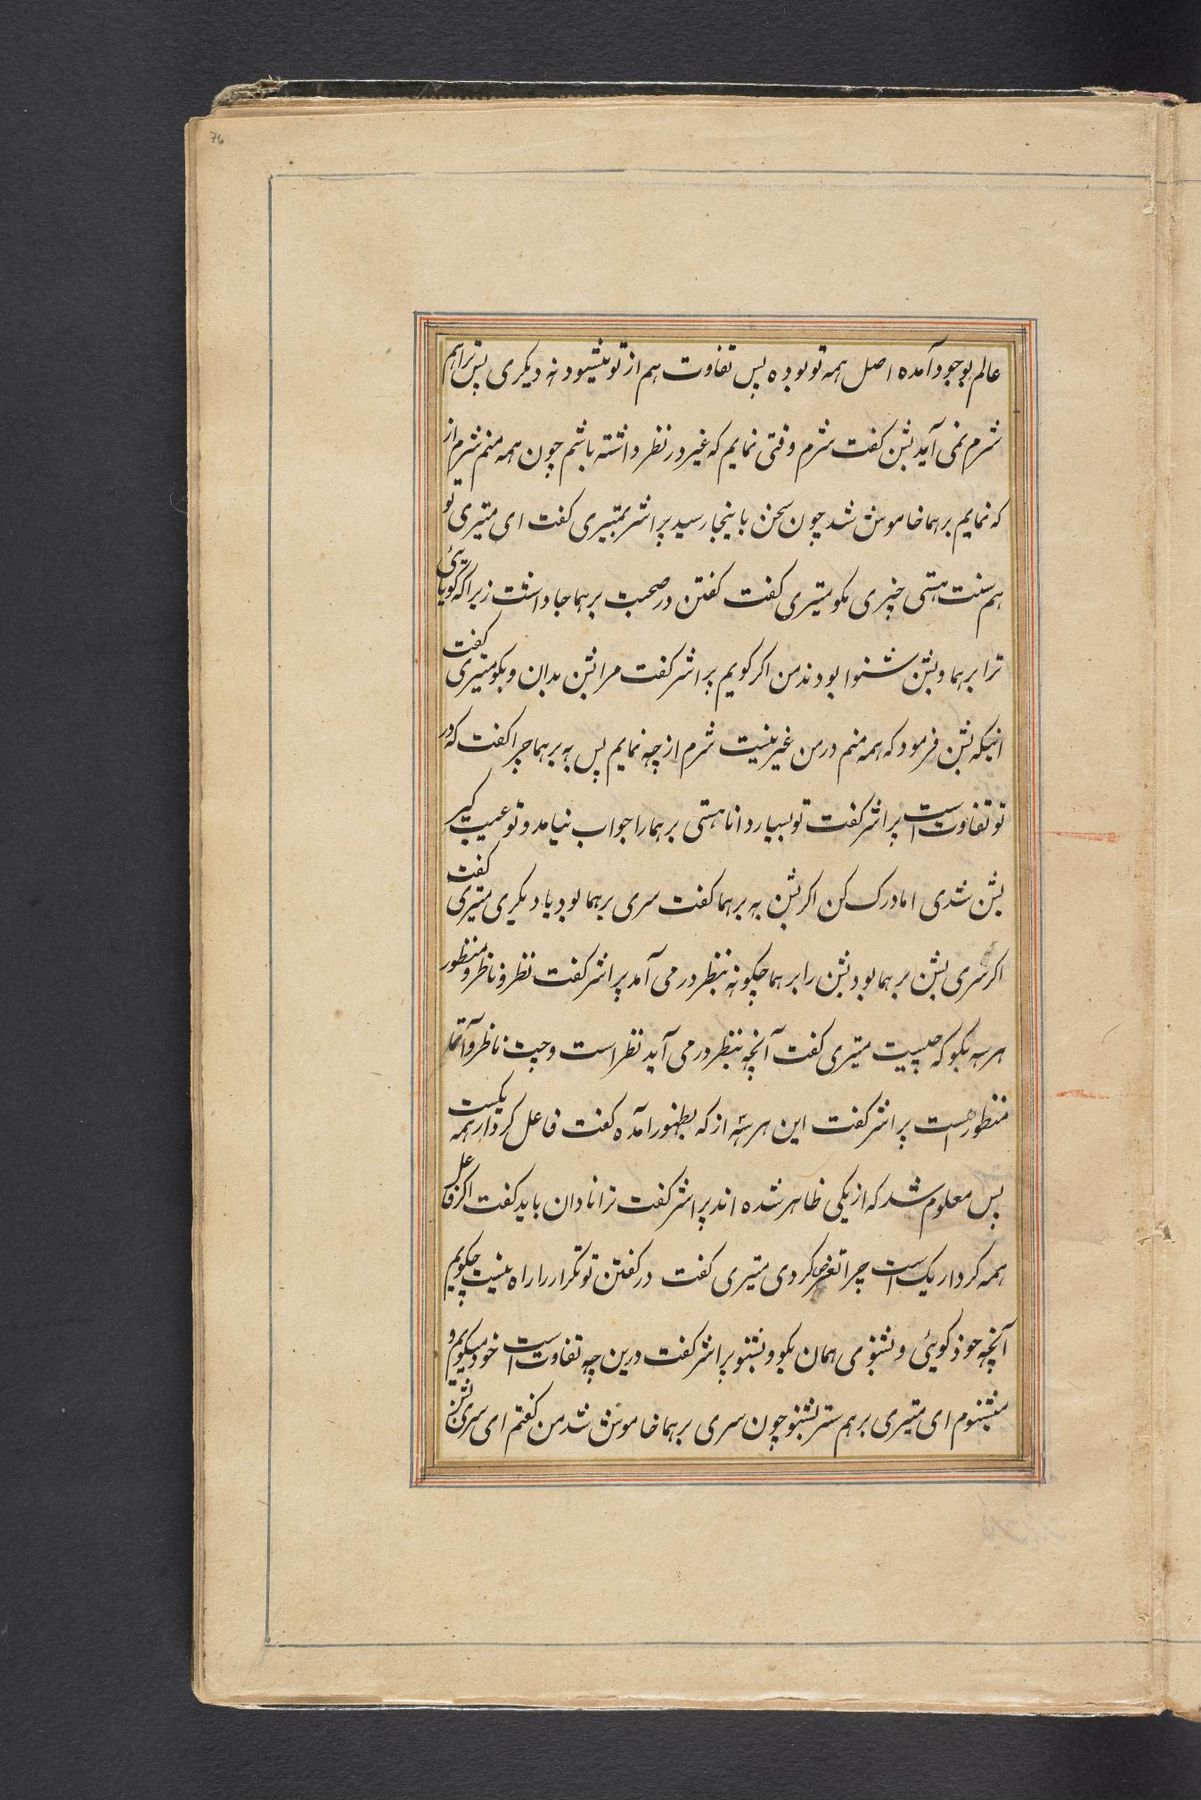 76
عالم بوجود آمده اصل همه تو بوده پس تفاوت هم از تو میشود نه دیگری بشن را هم
شرم نمی آید بشن گفت شرم وقتی نمایم که غیر در نظر داشته باشم چون همه منم شرم از
که نمایم برهما خاموش شد چون سخن باینجا رسید پراشر بمتیری گفت ای متیری تو
هم سنت هستی چیزی بگو متیری گفت گفتن در صحبت برهما جا داشت زیرا که گویائی
ترا برهما و بشن شنوا بودند من اگر گویم پراشر گفت مرا بشن بدان و بگو متیری گفت
اینکه بشن فرمود که همه منم در من غیر نیست شرم از چه نمایم پس به برهما چرا گفت که در
تو تفاوت است پراشر گفت تو بسیار دانا هستی برهما را جواب نیامد و تو عیب گیر
بشن شدی اما درک کن اگر بشن به برهما گفت سری برهما بود یا دیگری متیری گفت
اگر سری بشن برهما بود بشن را برهما چگونه بنظر در می آمد پراشر گفت نظر و ناظر و منظور
هر سه بگو که چیست متیری گفت آنچه بنظر در می آید نظر است و چت ناظر و آتما
منظور است پراشر گفت این هر سه از که بظهور آمده گفت فاعل کردار همه یکیست
پس معلوم شد که از یکی ظاهر شده اند پراشر گفت ترا نادان باید گفت اگر فاعل
همه کردار یک است چرا تعرض کردی متیری گفت در گفتن تو تکرار را راه نیست چگویم
آنچه خود گوئی و بشنوی همان بگو و بشنو پراشر گفت درین چه تفاوت است خود میگویم و
میشنوم ای متیری برهم ستر بشنو چون سری برهما خاموش شد من گفتم ای سری بشن